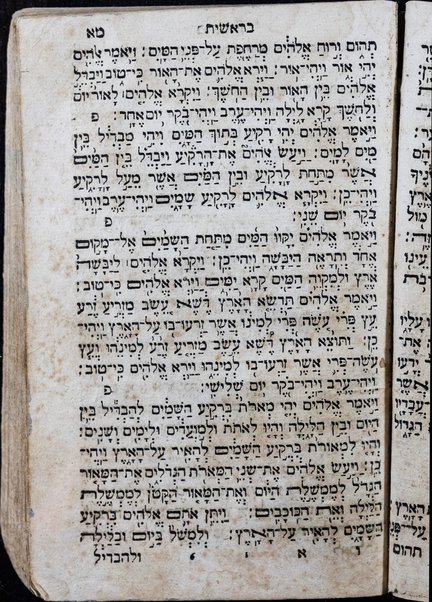 בראשית מא
תהום ורוח אלהים מרחפת על־פני המים׃ ויאמר אלהים
יהי אור ויהי־אור׃ וירא אלהים את־האור כי־טוב ויבדל
אלהים בין האור ובין החשך׃ ויקרא אלהים לאור יום
ולחשך קרא לילה ויהי־ערב ויהי־בקר יום אחד׃ פ
ויאמר אלהים יהי רקיע בתוך המים ויהי מבדיל בין
מים למים׃ ויעש אלהים את־הרקיע ויבדל בין המים
אשר מתחת לרקיע ובין המים אשר מעל לרקיע
ויהי־כן׃ ויקרא אלהים לרקיע שמים ויהי־ערב ויהי־
בקר יום שני׃ פ
ויאמר אלהים יקוו המים מתחת השמים אל־מקום
אחד ותראה היבשה ויהי־כן׃ ויקרא אלהים ליבשה
ארץ ולמקוה המים קרא ימים וירא אלהים כי־טוב׃
ויאמר אלהים תדשא הארץ דשא עשב מזריע זרע
עץ פרי עשה פרי למינו אשר זרעו־בו על־הארץ ויהי־
כן׃ ותוצא הארץ דשא עשב מזריע זרע למינהו ועץ
עשה־פרי אשר זרעו־בו למינהו וירא אלהים כי־טוב׃
ויהי־ערב ויהי־בקר יום שלישי׃ פ
ויאמר אלהים יהי מארת ברקיע השמים להבדיל בין
היום ובין הלילה והיו לאתת ולמועדים ולימים ושנים׃
והיו למאורת ברקיע השמים להאיר על־הארץ ויהי־
כן׃ ויעש אלהים את־שני המארת הגדלים את־המאור
הגדל לממשלת היום ואת־המאור הקטן לממשלת
הלילה ואת הכוכבים׃ ויתן אתם אלהים ברקיע
השמים להאיר על־הארץ׃ ולמשל ביום ובלילה
ו א י ולהבדיל